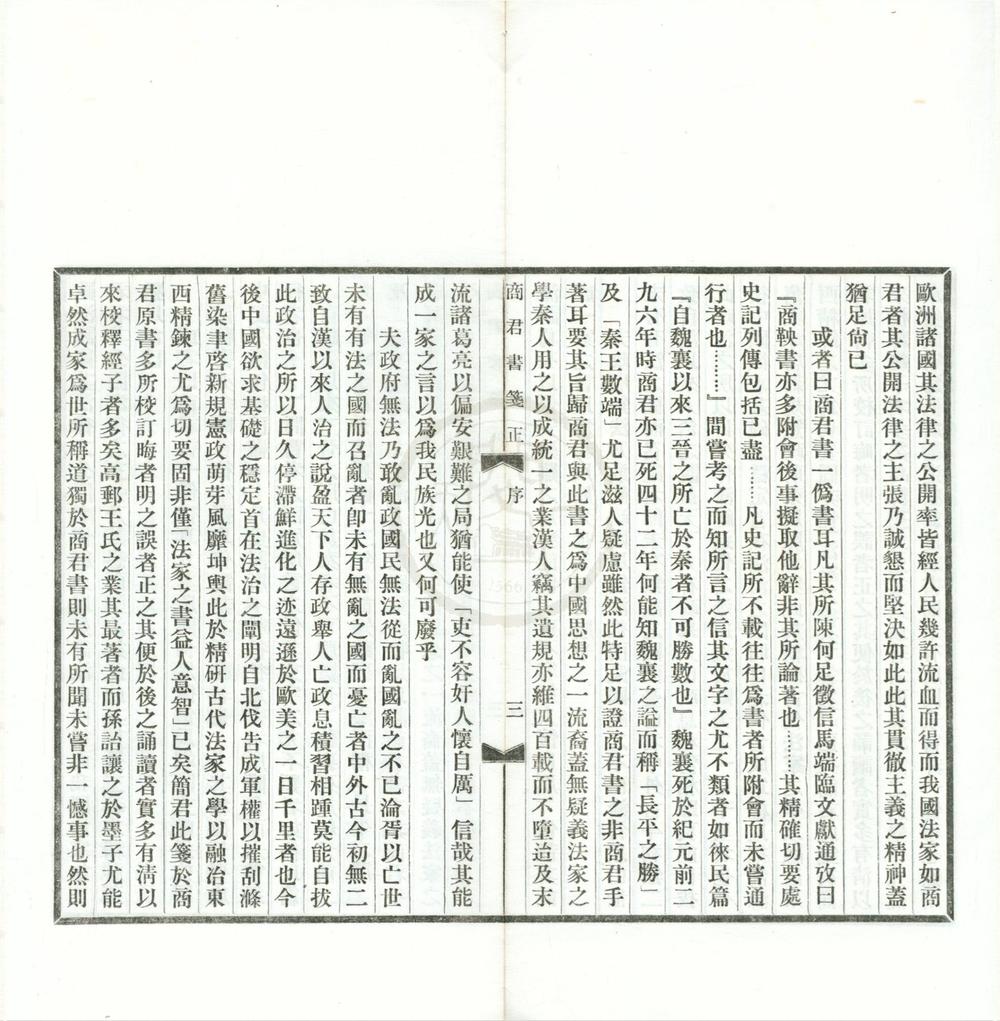 歐洲諸國其法律之公開率皆經人民幾許流血而得而我國法家如商
君者其公開法律之主張乃誠懇而堅決如此此其貫徹主義之精神蓋
猶足尙已
或者曰商君書一僞書耳凡其所陳何足徵信馬端臨文獻通攷曰
『商鞅書亦多附會後事擬取他辭非其所論著也……其精確切要處
史記列傳包括已盡……凡史記所不載往往爲書者所附會而未嘗通
行者也………』間嘗考之而知所言之信其文字之尤不類者如徠民篇
『自魏襄以來三晉之所亡於秦者不可勝數也』魏襄死於紀元前二
九六年時商君亦已死四十二年何能知魏襄之謚而稱「長平之勝」
及「秦王數端」尤足滋人疑慮雖然此特足以證商君書之非商君手
著耳要其旨歸商君與此書之爲中國思想之一流裔蓋無疑義法家之
學秦人用之以成統一之業漢人竊其遺規亦維四百載而不墮迨及末
商君書箋正 序 三
流諸葛亮以偏安艱難之局猶能使「吏不容奸人懷自厲」信哉其能
成一家之言以爲我民族光也又何可廢乎
夫政府無法乃敢亂政國民無法從而亂國亂之不已淪胥以亡世
未有有法之國而召亂者卽未有無亂之國而憂亡者中外古今初無二
致自漢以來人治之說盈天下人存政舉人亡政息積習相踵莫能自拔
此政治之所以日久停滯鮮進化之迹遠遜於歐美之一日千里者也今
後中國欲求基礎之穩定首在法治之闡明自北伐吿成軍權以摧刮滌
舊染聿啓新規憲政萌芽風靡坤輿此於精研古代法家之學以融冶東
西精鍊之尤爲切要固非僅「法家之書益人意智」已矣簡君此箋於商
君原書多所校訂晦者明之誤者正之其便於後之誦讀者實多有淸以
來校釋經子者多矣高郵王氏之業其最著者而孫詒讓之於墨子尤能
卓然成家爲世所稱道獨於商君書則未有所聞未嘗非一憾事也然則